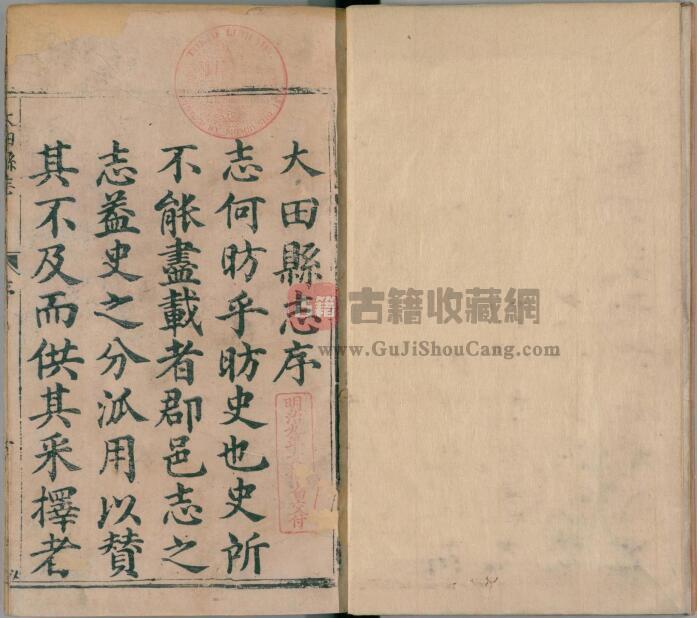 大田縣志序
志何昉乎昉史也史所
不能盡載者郡邑志之
志葢史之分派用以贊
其不及而供其采擇者
古籍收藏網
www.GuJiShouCang.com
古籍